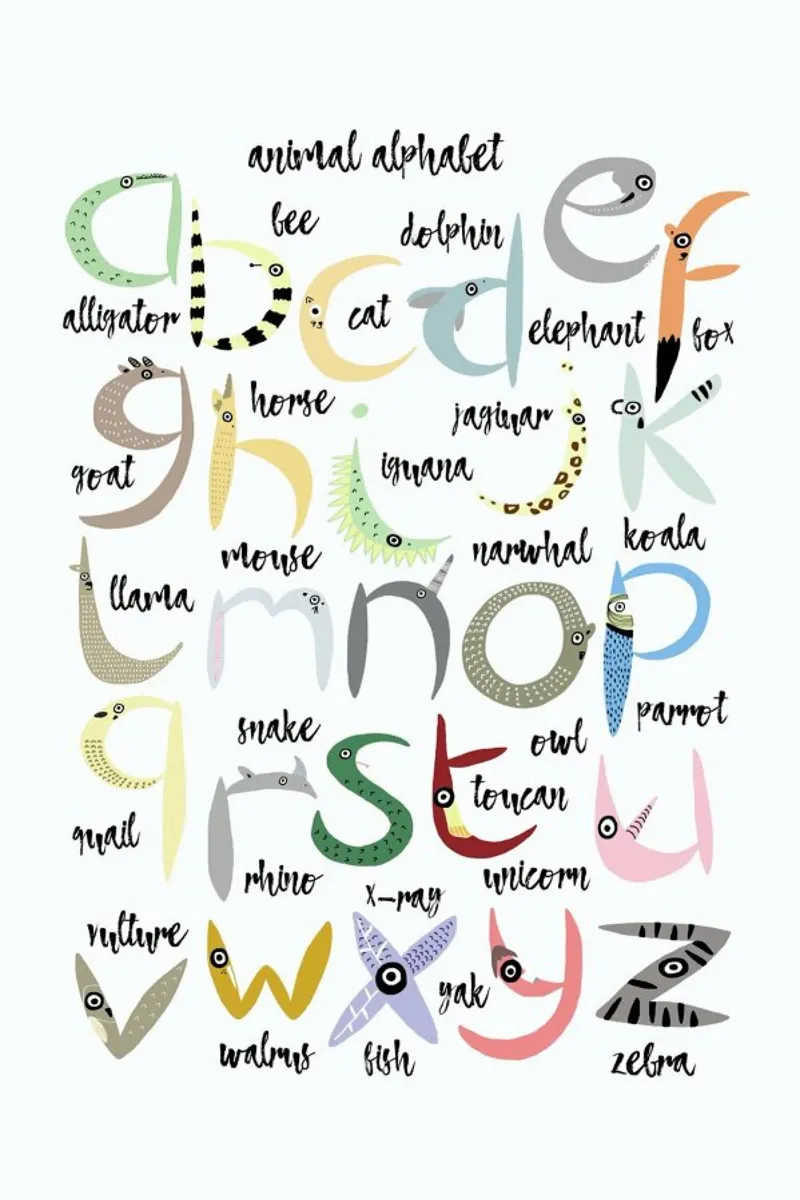 animal alphabet
bee
dolphin
alligator
cat
elephant
fox
horse
jaguar
goat
iguana
mouse
narwhal
koala
llama
parrot
snake
owl
quail
toucan
rhino
unicorn
x-ray
vulture
yak
walrus
fish
zebra